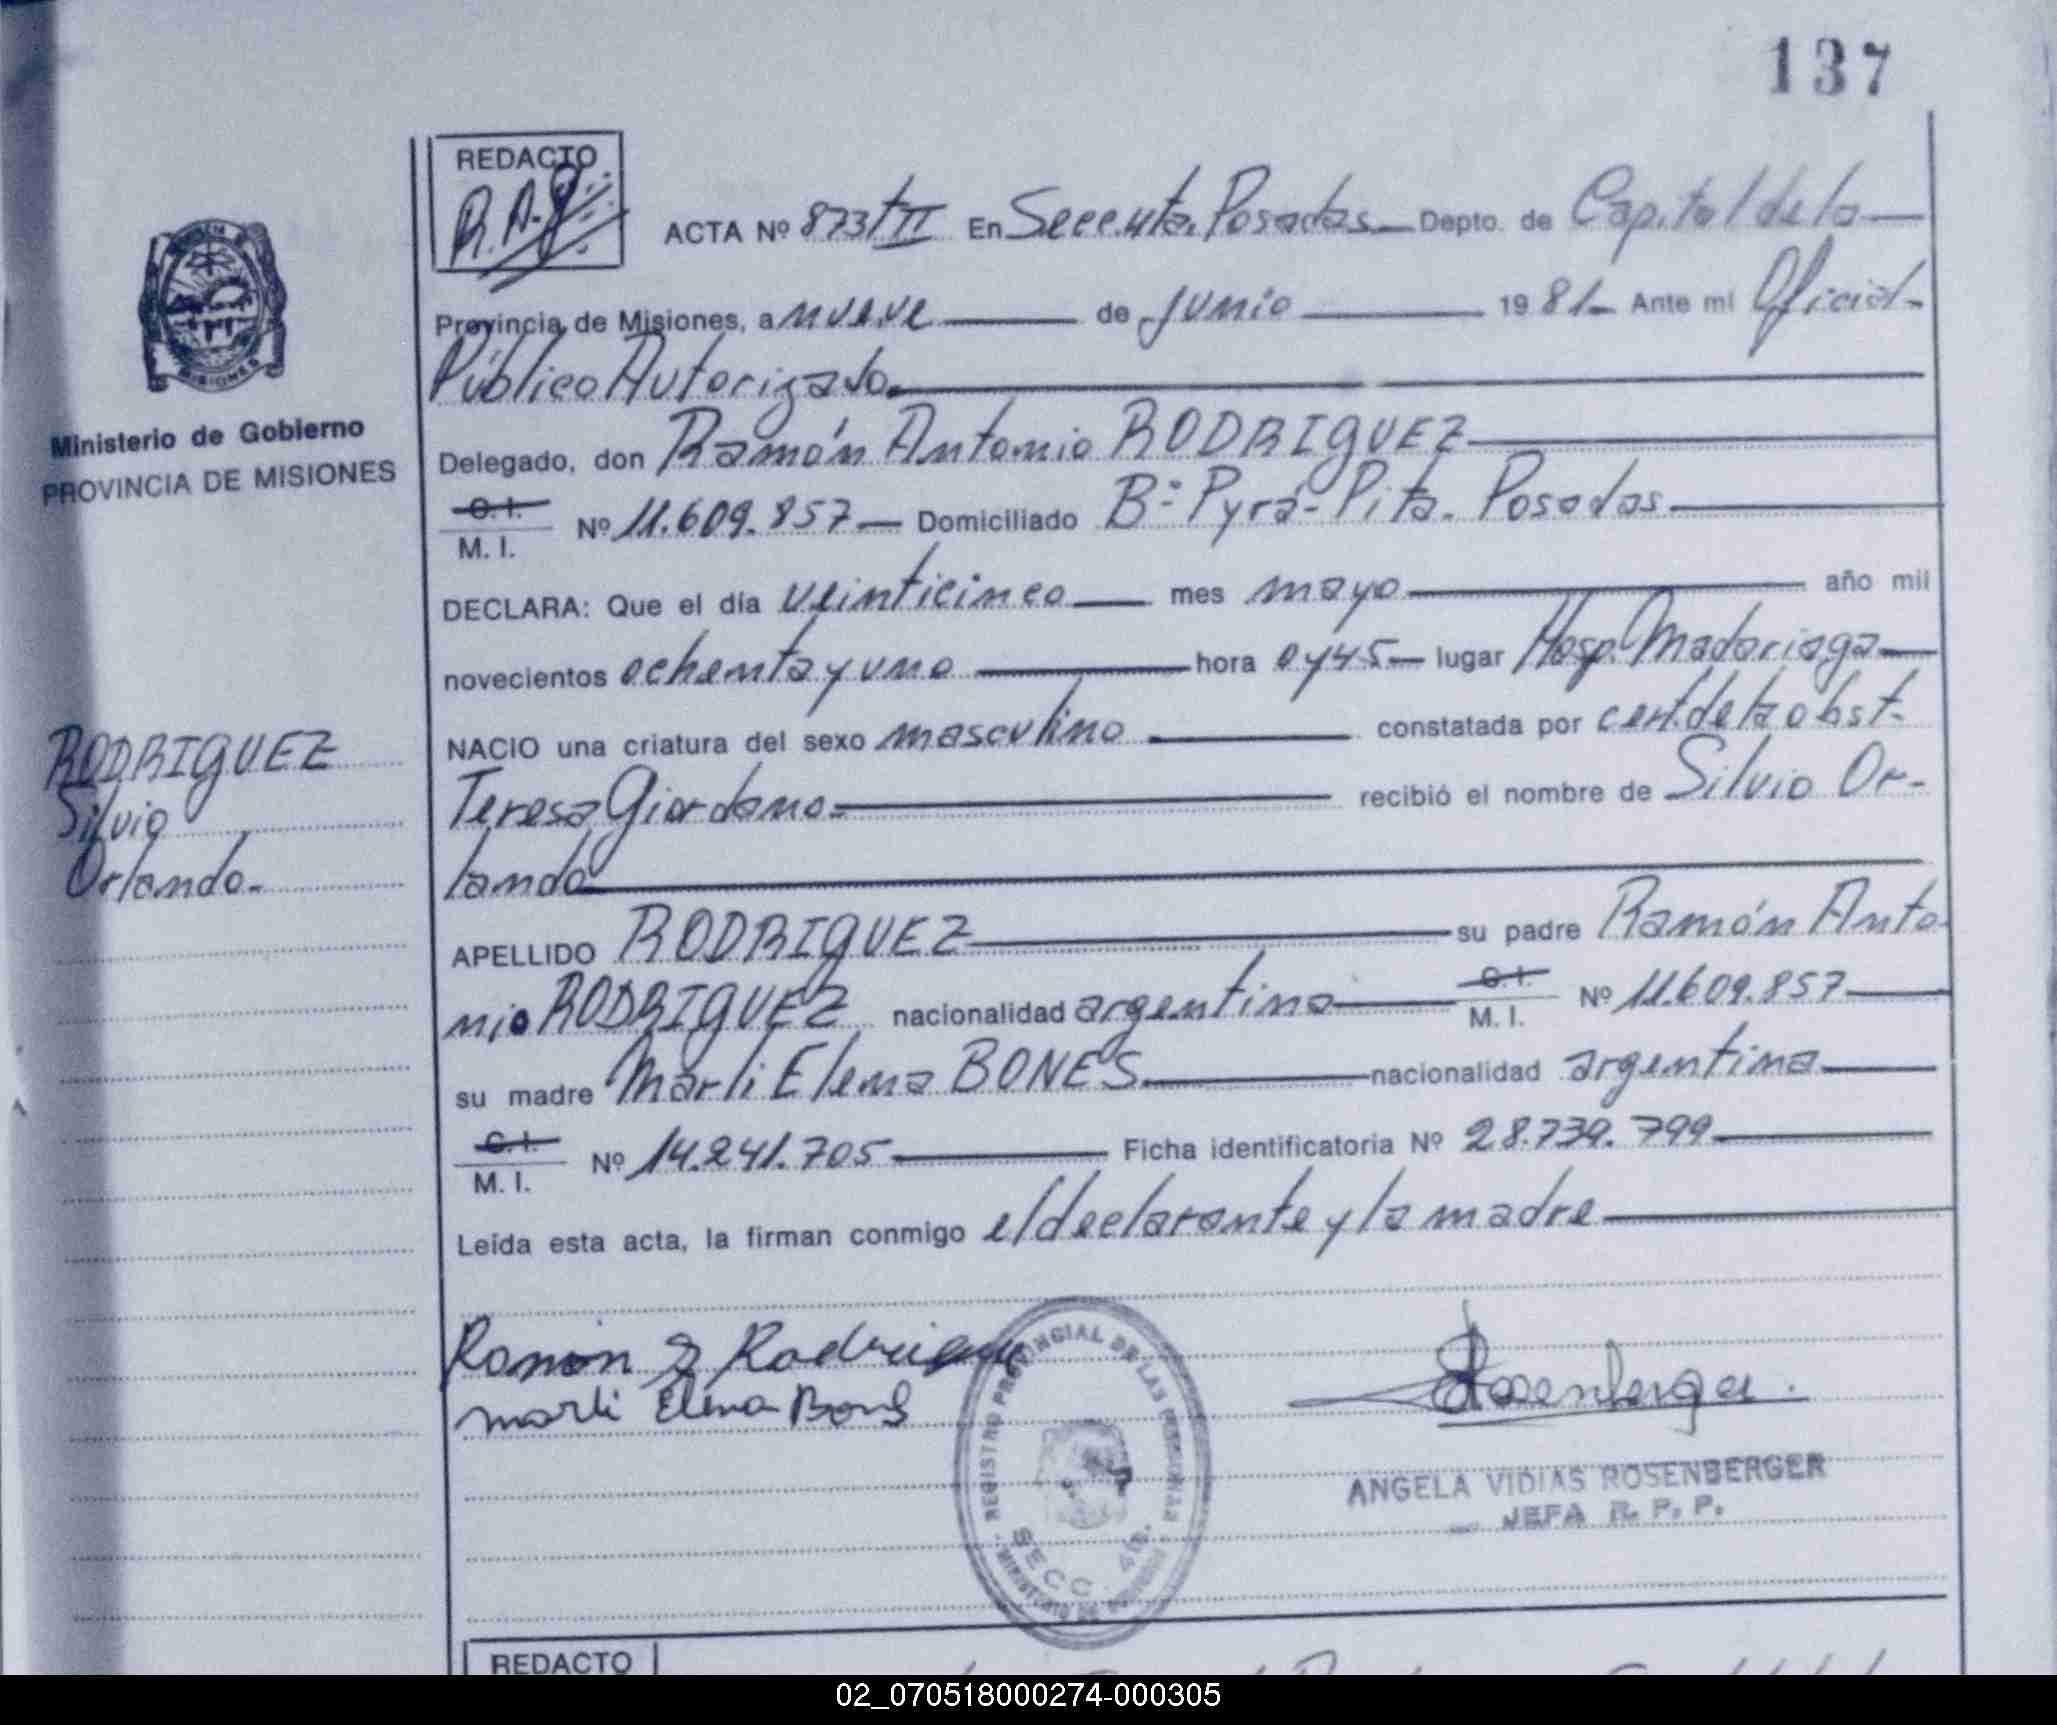 137
REDACTO
R.A.
ACTA Nº 873TII En Secc.4ta. Posadas Depto. de Capital de la
Provincia de Misiones, a nueve de junio 1981 Ante mí Oficial
Público Autorizado
Ministerio de Gobierno
PROVINCIA DE MISIONES
Delegado, don Ramón Antonio RODRIGUEZ
C. I.
M. I. Nº 11.609.857 Domiciliado Bº Pyrá-Pita. Posadas
DECLARA: Que el día veinticinco mes mayo año mil
novecientos ochenta y uno hora 0y45 lugar Hosp. Madariaga
NACIO una criatura del sexo masculino constatada por cert.de la obst.
Teresa Giordano recibió el nombre de Silvio Or-
lando
RODRIGUEZ
Silvio
Orlando.
APELLIDO RODRIGUEZ su padre Ramón Anto
nio RODRIGUEZ nacionalidad argentina C. I.
M. I. Nº 11.609.857
su madre Marli Elena BONES nacionalidad argentina
C. I.
M. I. Nº 14.241.705 Ficha identificatoria Nº 28.739.799
Leída esta acta, la firman conmigo el declarante y la madre
Ramon Rodriguez
Marli Elena Bones
REGISTRO PROVINCIAL DE LAS PERSONAS
SECC. 4ta.
MINISTERIO DE GOBIERNO
Rosenberger
ANGELA VIDIAS ROSENBERGER
JEFA R. P. P.
REDACTO
02_070518000274-000305